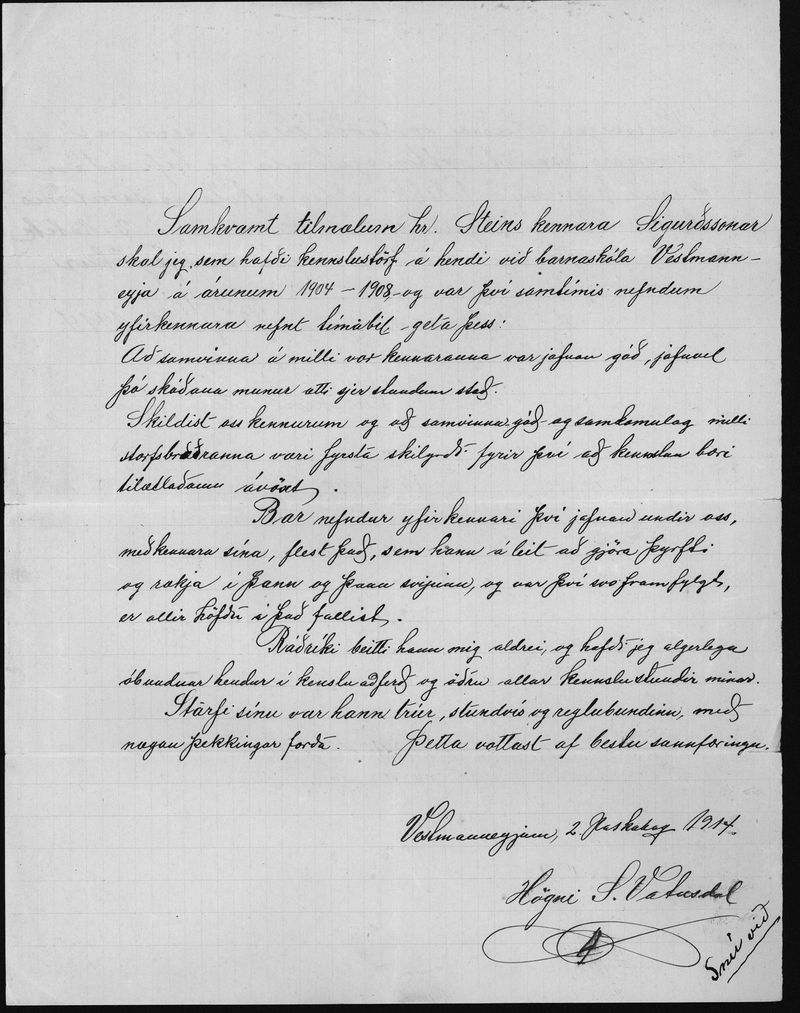 Samkvæmt tilmælum hr. Steins kennara Sigurðssonar
skal jeg, sem hafði kennslustörf á hendi við barnaskóla Vestmann-
eyja á árunum 1904-1908 og var því samtímis nefndum
yfirkennara nefnt tímabil geta þess:
Að samvinna á milli vor kennaranna var jafnan góð, jafnvel
þó skoðana munur ætti sjer stundum stað.
Skildist oss kennurum og að samvinna góð og samkomulag milli
starfsbræðranna væri fyrsta skilyrði fyrir því að kennslan bæri
tilætlaðann ávöxt.
Bar nefndur yfirkennari því jafnan undir oss,
meðkennara sína, flest það, sem hann á leit að gjöra þyrfti
og rækja í þann og þann svipinn, og var því svo framfylgt,
er allir höfðu í það fallist.
Ráðríki beitti hann mig aldrei, og hafði jeg algerlega
óbundnar hendur í kenslu aðferð og öðru allar kennslustundir mínar.
Starfi sínu var hann trúr, stundvís og reglubundinn, með
nægan þekkingar forða. Þetta vottast af bestu sannfæringu.
Vestmanneyjum, 2. Páskadag 1914.
Högni S. Vatnsdal
Snú við